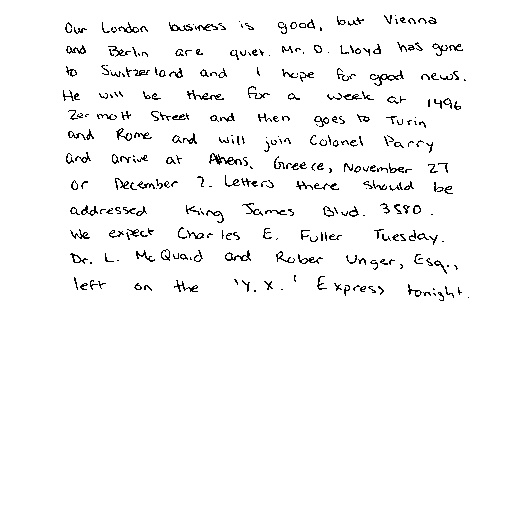 Our London business is good, but Vienna
and Berlin are quiet. Mr. D. Lloyd has gone
to Switzerland and I hope for good news.
He will be there for a week at 1496
Zermott Street and then goes to Turin
and Rome and will join Colonel Parry
and arrive at Athens, Greece, November 27
or December 2. Letters there should be
addressed King James Blvd. 3580.
We expect Charles E. Fuller Tuesday.
Dr. L. McQuaid and Rober Unger, Esq.,
left on the 'Y.X.' Express tonight.